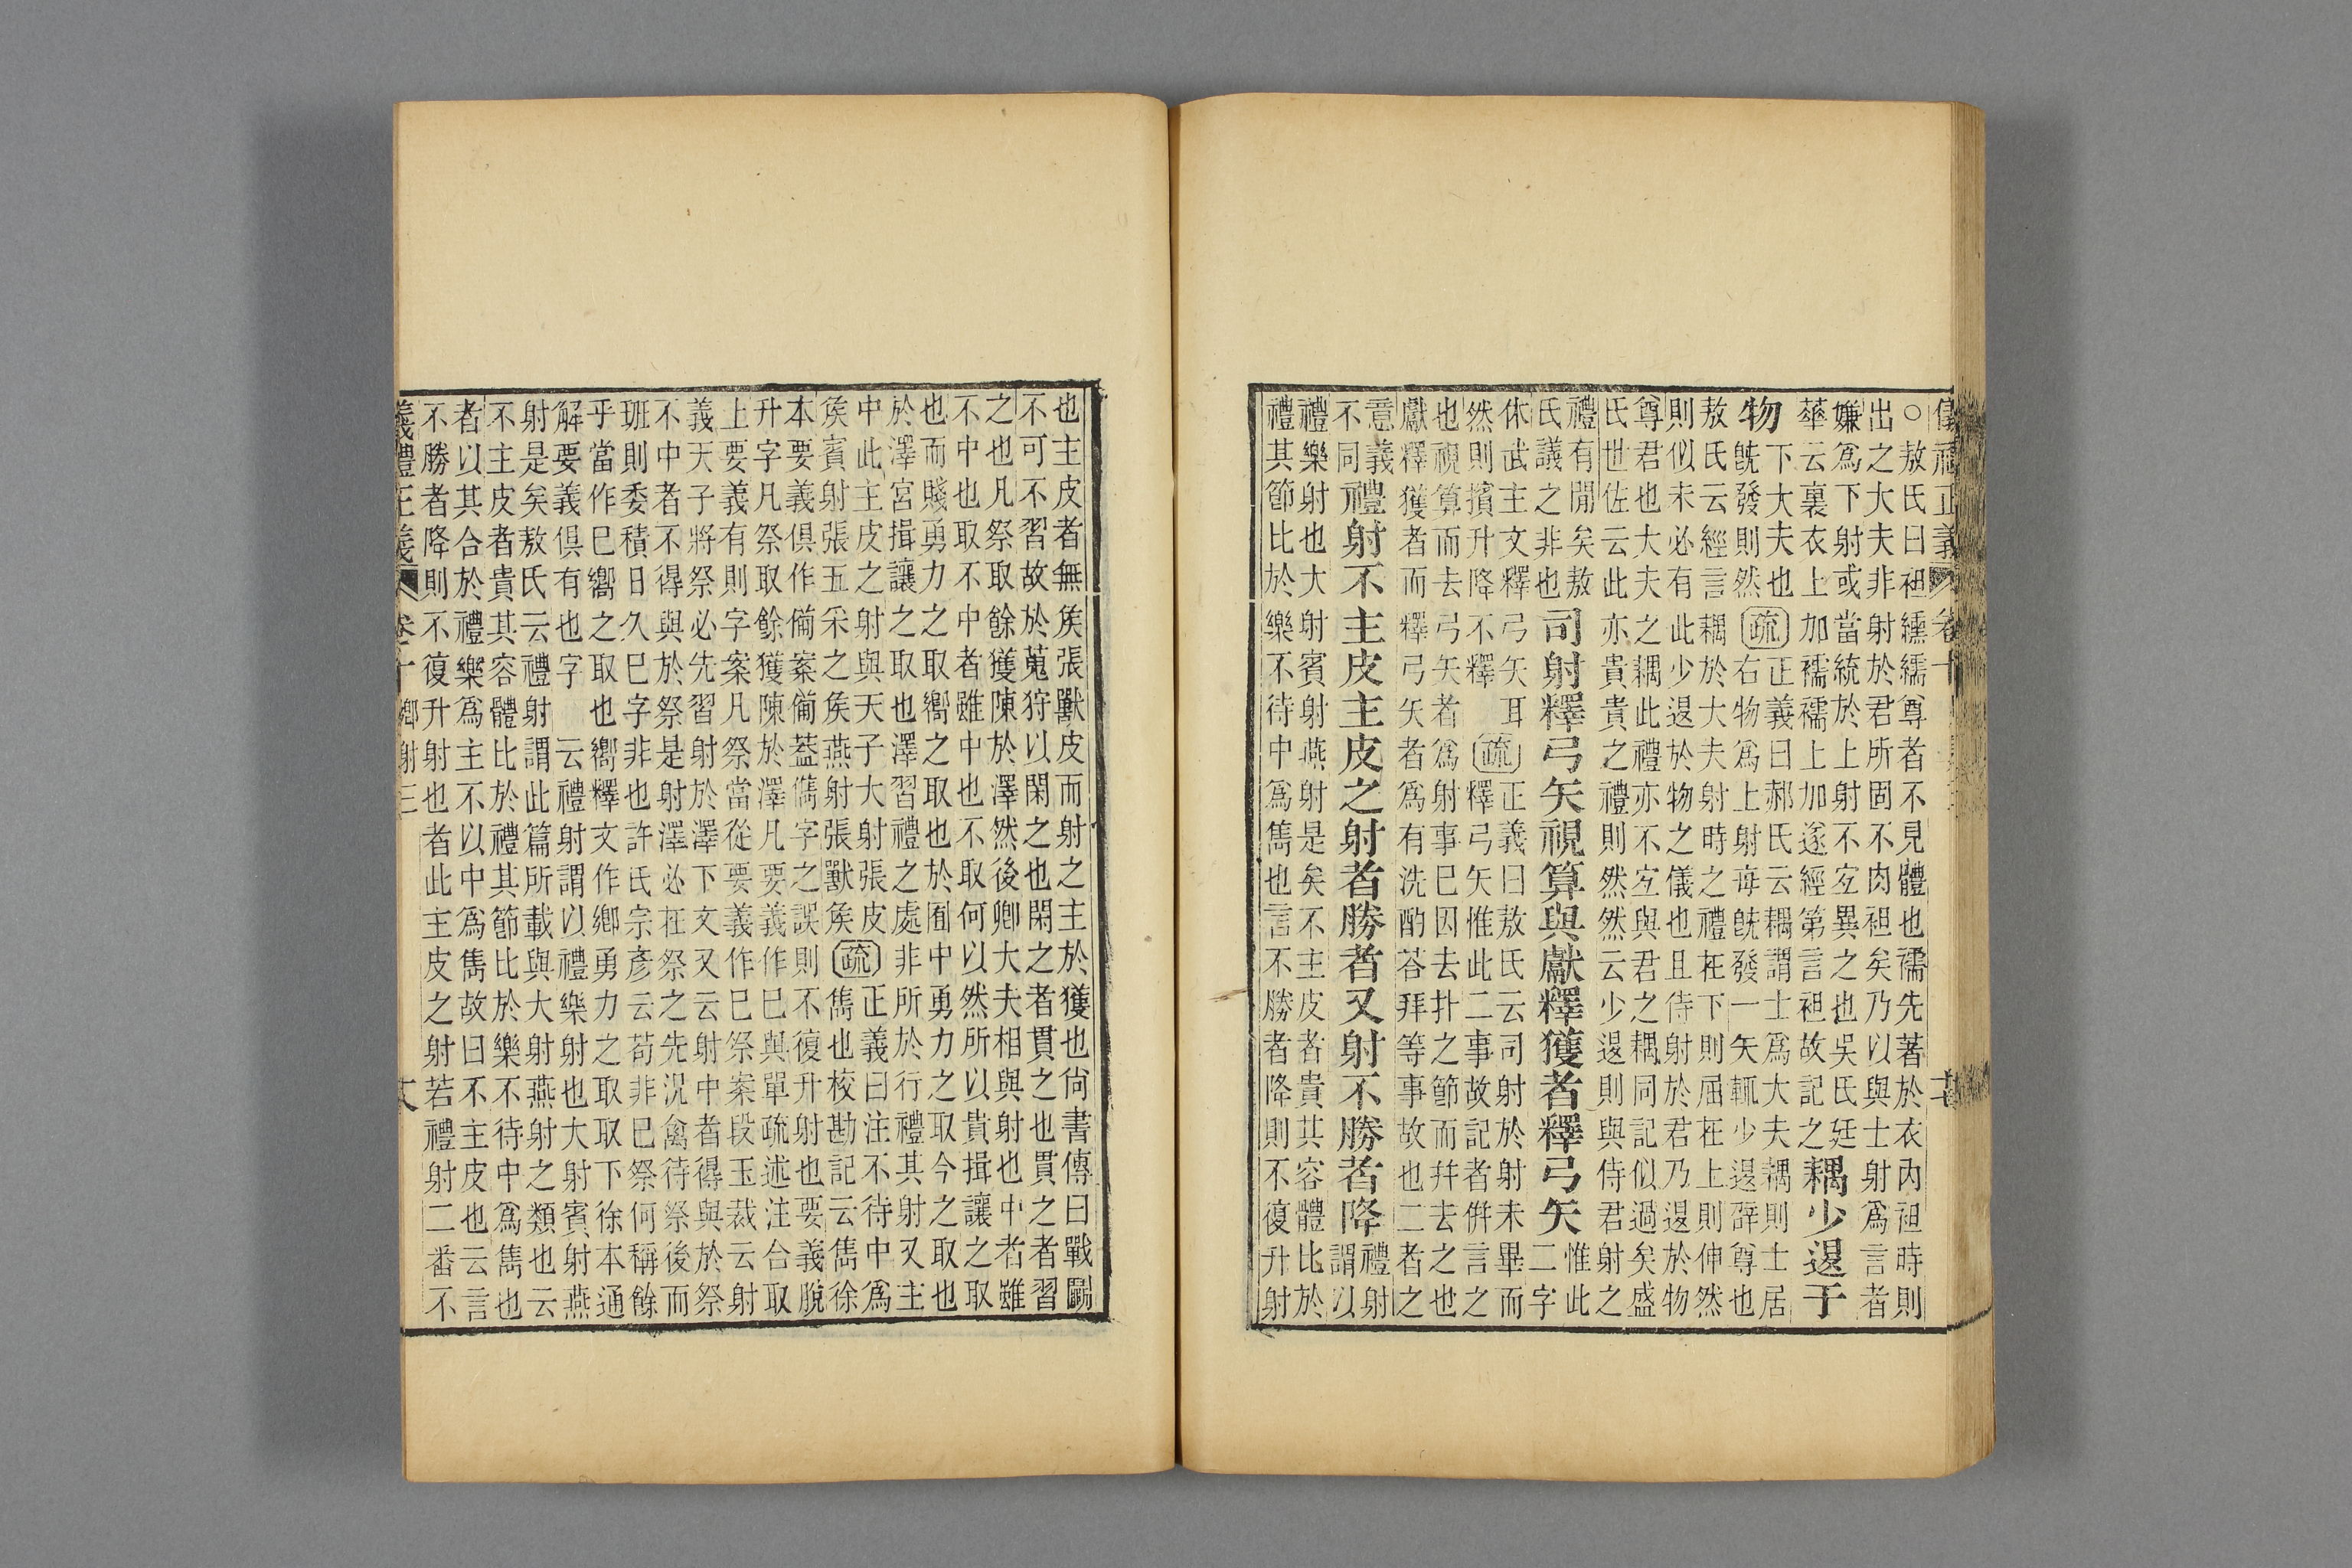 儀禮正義 卷十
○敖氏曰袒纁襦尊者不見體也襦先著於衣內袒時則
出之大夫非射於君所固不肉袒矣乃以與士射爲言者
嫌爲下射或當統於上射不宐異之也吳氏廷
華云裏衣上加襦襦上加遂經第言袒故記之
耦少退于
物
下大夫也
既發則然
疏
正義曰郝氏云耦謂士爲大夫耦則士居
右物爲上射每既發一矢輒少退辟尊也
敖氏云經言耦於大夫射時之禮在下則屈在上則伸然
則似未必有此少退於物之儀也且侍射於君乃退於物
尊君也大夫之耦此禮亦不宐與君之耦同記似過矣盛
氏世佐云此亦貴貴之禮則然然云少退則與侍君射之
禮有閒矣敖
氏議之非也
司射釋弓矢視算與獻釋獲者釋弓矢
惟此
二字
休武主文釋弓矢耳
然則擯升降不釋
疏
正義曰敖氏云司射於射未畢而
釋弓矢惟此二事故記者併言之
也視算而去弓矢者爲射事已因去扑之節而幷去之也
獻釋獲者而釋弓矢者爲有洗酌荅拜等事故也二者之
意義
不同
禮射不主皮主皮之射者勝者又射不勝者降
禮射
謂以
禮樂射也大射賓射燕射是矣不主皮者貴其容體比於
禮其節比於樂不待中爲雋也言不勝者降則不復升射
也主皮者無矦張獸皮而射之主於獲也尙書傳曰戰鬭
不可不習故於蒐狩以閑之也閑之者貫之也貫之者習
之也凡祭取餘獲陳於澤然後卿大夫相與射也中者雖
不中也取不中者雖中也不取何以然所以貴揖讓之取
也而賤勇力之取嚮之取也於囿中勇力之取今之取也
於澤宮揖讓之取也澤習禮之處非所於行禮其射又主
中此主皮之射與天子大射張皮
矦賓射張五采之矦燕射張獸矦
疏
正義曰注不待中爲
雋也校勘記云雋徐
本要義俱作㒞案㒞葢儁字之誤則不復升射也要義脫
升字凡祭取餘獲陳於澤凡要義作巳與單疏述注合取
上要義有則字案凡祭當從要義作巳祭案段玉裁云射
義天子將祭必先習射於澤下文又云射中者得與於祭
不中者不得與於祭是射澤必在祭之先況禽待祭後而
班則委積日久巳字非也許氏宗彥云苟非巳祭何稱餘
乎當作巳嚮之取也嚮釋文作鄉勇力之取取下徐本通
解要義俱有也字 云禮射謂以禮樂射也大射賓射燕
射是矣敖氏云禮射謂此篇所載與大射燕射之類也云
不主皮者貴其容體比於禮其節比於樂不待中爲雋也
者以其合於禮樂爲主不以中爲雋故曰不主皮也云言
不勝者降則不復升射也者此主皮之射若禮射二番不
義禮正義 卷十 鄉射三